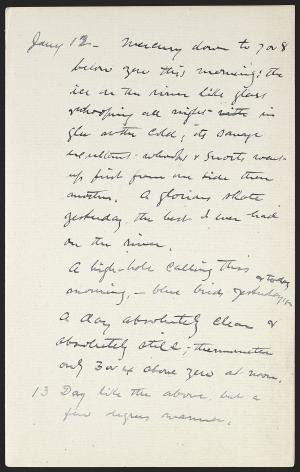 Jany 12 - Mercury down to 7 or 8
below zero this morning; the
ice on the river like glass
whooping all night with in
glee at the cold; its savage
exultant whoops & snorts went
up first from one side then
another. A glorious skate
yesterday, the best I ever had
on the river.
A high-hole calling this
morning, - blue birds yesterday & today
A day absolutely clear &
absolutely still; thermometer
only 3 or 4 above zero at noon.
13 Day like the above, but a
few degrees warmer.